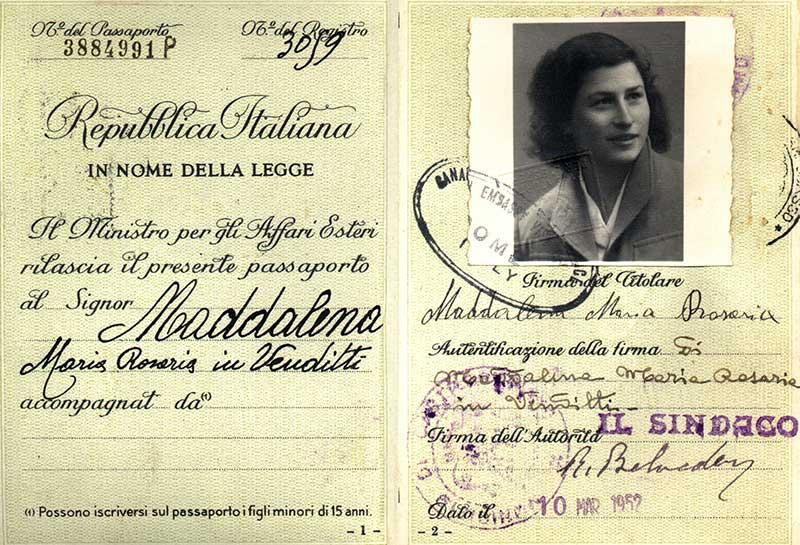 Nº del Passaporto
3884991 P
Nº del Registro
3059
Repubblica Italiana
IN NOME DELLA LEGGE
Il Ministro per gli Affari Esteri
rilascia il presente passaporto
al Signor Maddalena
Maria Rosaria in Venditti
accompagnat da(1)
(1) Possono iscriversi sul passaporto i figli minori di 15 anni.
- 1 -
EMBASSY
ROME
ITALY
Firma del Titolare
Maddalena Maria Rosaria
Autentificazione della firma Di
Maddalena Maria Rosaria
in Venditti
IL SINDACO
Firma dell'Autorità
Dato il 10 MAR 1952
- 2 -